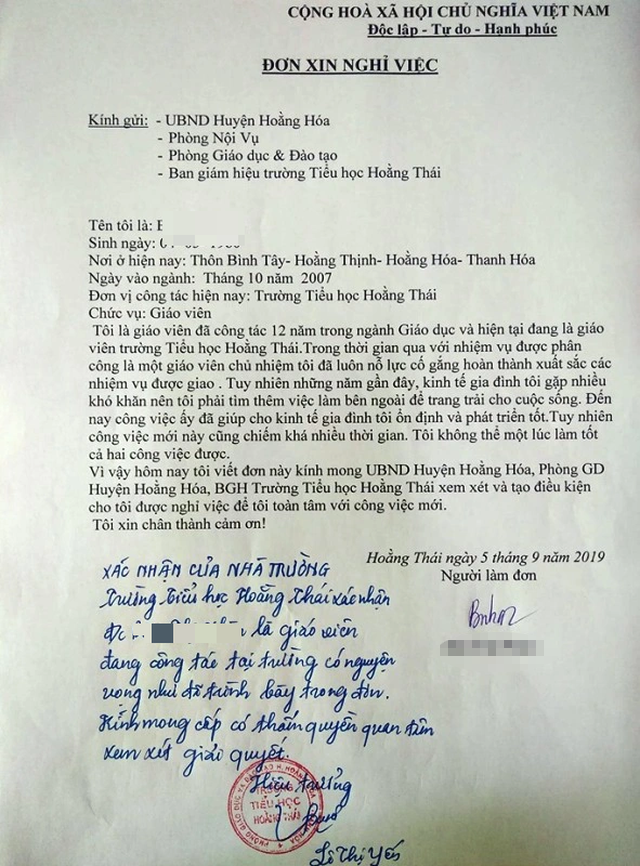 CỘNG HOÀ XÃ HỘI CHỦ NGHĨA VIỆT NAM
Độc lập - Tự do - Hạnh phúc
ĐƠN XIN NGHỈ VIỆC
Kính gửi: - UBND Huyện Hoằng Hóa
- Phòng Nội Vụ
- Phòng Giáo dục & Đào tạo
- Ban giám hiệu trường Tiểu học Hoằng Thái
Tên tôi là:
Sinh ngày:
Nơi ở hiện nay: Thôn Bình Tây- Hoằng Thịnh- Hoằng Hóa- Thanh Hóa
Ngày vào ngành: Tháng 10 năm 2007
Đơn vị công tác hiện nay: Trường Tiểu học Hoằng Thái
Chức vụ: Giáo viên
Tôi là giáo viên đã công tác 12 năm trong ngành Giáo dục và hiện tại đang là giáo
viên trường Tiểu học Hoằng Thái.Trong thời gian qua với nhiệm vụ được phân
công là một giáo viên chủ nhiệm tôi đã luôn nỗ lực cố gắng hoàn thành xuất sắc các
nhiệm vụ được giao . Tuy nhiên những năm gần đây, kinh tế gia đình tôi gặp nhiều
khó khăn nên tôi phải tìm thêm việc làm bên ngoài để trang trải cho cuộc sống. Đến
nay công việc ấy đã giúp cho kinh tế gia đình tôi ổn định và phát triển tốt.Tuy nhiên
công việc mới này cũng chiếm khá nhiều thời gian. Tôi không thể một lúc làm tốt
cả hai công việc được.
Vì vậy hôm nay tôi viết đơn này kính mong UBND Huyện Hoằng Hóa, Phòng GD
Huyện Hoằng Hóa, BGH Trường Tiểu học Hoằng Thái xem xét và tạo điều kiện
cho tôi được nghỉ việc để tôi toàn tâm với công việc mới.
Tôi xin chân thành cảm ơn!
Hoằng Thái ngày 5 tháng 9 năm 2019
Người làm đơn
XÁC NHẬN CỦA NHÀ TRƯỜNG
Trường Tiểu học Hoằng Thái xác nhận
là giáo viên
đang công tác tại trường có nguyện
vọng như đã trình bày trong đơn.
Kính mong cấp có thẩm quyền quan tâm
xem xét giải quyết.
Hiệu trưởng
TRƯỜNG
TIỂU HỌC
HOẰNG THÁI
Lê Thị Yến